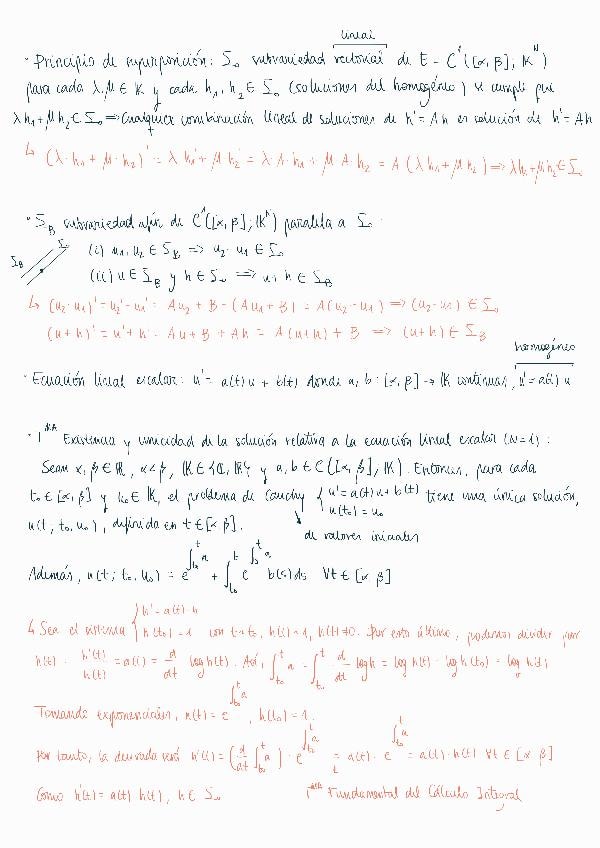 lineal
· Principio de superposición: Σ₀ subvariedad vectorial de E = C¹([α, β]; K^N)
para cada λ, μ ∈ K y cada h₁, h₂ ∈ Σ₀ (soluciones del homogéneo) se cumple que
λh₁ + μh₂ ∈ Σ₀ ⇒ Cualquier combinación lineal de soluciones de h' = Ah es solución de h' = Ah
↳ (λ·h₁ + μ·h₂)' = λh₁' + μh₂' = λ·A·h₁ + μ·A·h₂ = A(λh₁ + μh₂) ⇒ λh₁ + μh₂ ∈ Σ₀
· Σ_B subvariedad afín de C¹([α, β]; K^N) paralela a Σ₀:
Σ_B Σ₀ (i) u₁, u₂ ∈ Σ_B ⇒ u₂ - u₁ ∈ Σ₀
(ii) u ∈ Σ_B y h ∈ Σ₀ ⇒ u + h ∈ Σ_B
↳ (u₂ - u₁)' = u₂' - u₁' = Au₂ + B - (Au₁ + B) = A(u₂ - u₁) ⇒ (u₂ - u₁) ∈ Σ₀
(u + h)' = u' + h' = Au + B + Ah = A(u + h) + B ⇒ (u + h) ∈ Σ_B
homogéneo
· Ecuación lineal escalar: u' = a(t)u + b(t) donde a, b: [α, β] → K continuas, u' = a(t)u
· T^MA Existencia y unicidad de la solución relativa a la ecuación lineal escalar (N=1):
Sean α, β ∈ R, α<β, K ∈ {C, R} y a, b ∈ C([α, β]; K). Entonces, para cada
t₀ ∈ [α, β] y u₀ ∈ K, el problema de Cauchy { u' = a(t)u + b(t) u(t₀) = u₀ tiene una única solución,
u(t, t₀, u₀), definida en t ∈ [α, β].
de valores iniciales
Además, u(t; t₀, u₀) = e^{∫_{t₀}^t a} + ∫_{t₀}^t e^{∫_s^t a} b(s)ds ∀t ∈ [α, β]
↳ Sea el sistema { h' = a(t)·h h(t₀) = 1 con t → t₀, h(t) → 1, h(t) ≠ 0. Por esto último, podemos dividir por
h(t): h'(t)/h(t) = a(t) = d/dt log h(t). Así, ∫_{t₀}^t a = ∫_{t₀}^t d/dt log h = log h(t) - log h(t₀) = log h(t)
Tomando exponenciales, h(t) = e^{∫_{t₀}^t a}, h(t₀) = 1.
Por tanto, la derivada será h'(t) = (d/dt ∫_{t₀}^t a)·e^{∫_{t₀}^t a} = a(t)·e^{∫_{t₀}^t a} = a(t)·h(t) ∀t ∈ [α, β]
Como h'(t) = a(t)·h(t), h ∈ Σ₀ T^MA Fundamental del Cálculo Integral